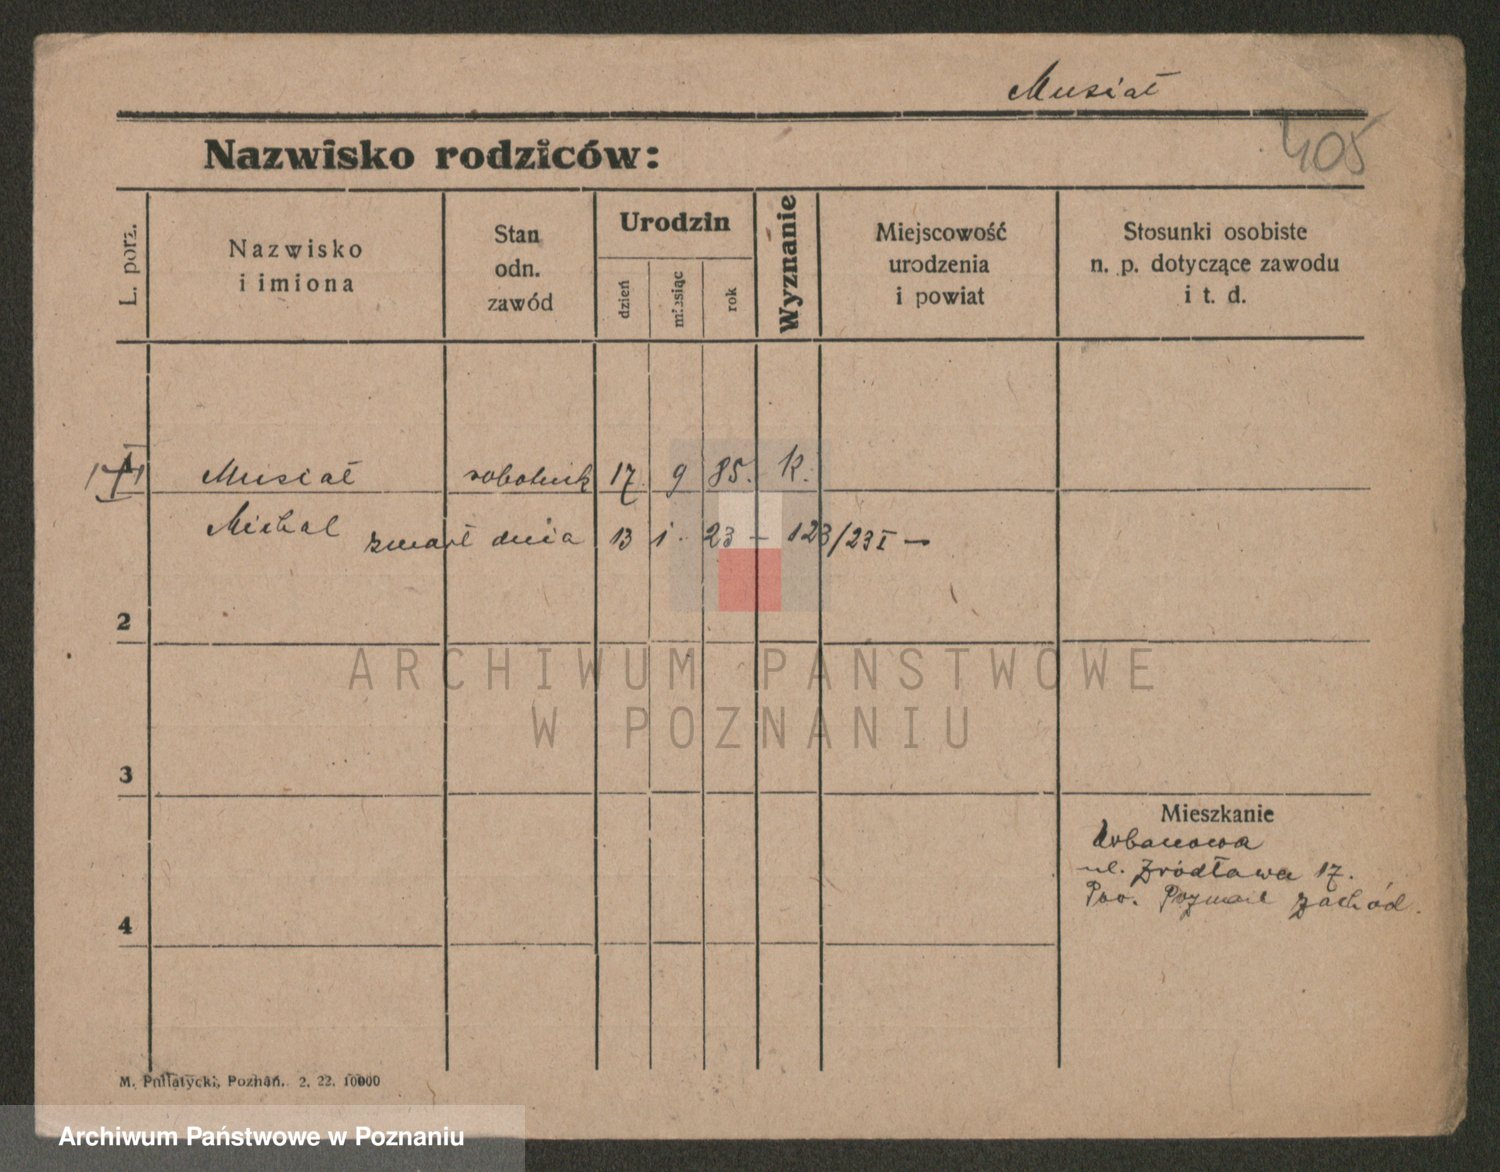 Musiał
405
Nazwisko rodziców:
L. porz.
Nazwisko
i imiona
Stan
odn.
zawód
Urodzin
dzień
miesiąc
rok
Wyznanie
Miejscowość
urodzenia
i powiat
Stosunki osobiste
n. p. dotyczące zawodu
i t. d.
1 Musiał robotnik 17 9 85. K.
Michał zmarł dnia 13 1. 23 — 123/23 I —
2
ARCHIWUM PAŃSTWOWE
W POZNANIU
3
Mieszkanie
Urbanowa
ul. Źródlana 17.
Pow. Poznań zachód.
4
M. Putiatycki, Poznań. 2. 22. 10000
Archiwum Państwowe w Poznaniu